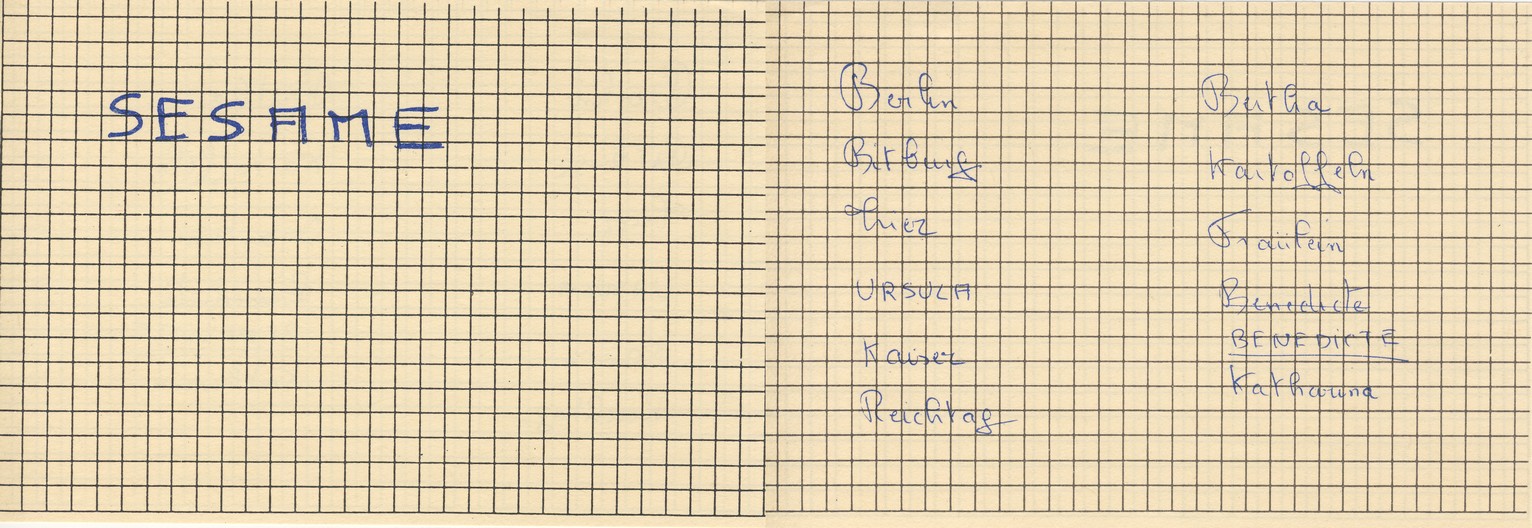 SESAME
Berlin
Bitburg
Trier
URSULA
Kaiser
Reichtag
Bertha
Kartoffeln
Fraülein
Benedicte
BENEDICTE
Katharina